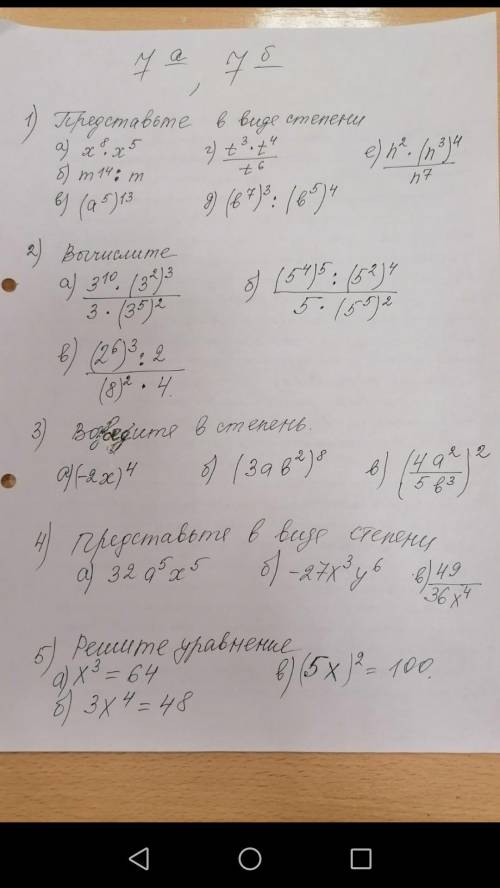 7 а , 7 б
1) Представьте в виде степени
а) x⁸ · x⁵ г) (t³ · t⁴)/t⁶ е) (n² · (n³)⁴)/n⁷
б) m¹⁴ : m
в) (a⁵)¹³ д) (b⁷)³ : (b⁵)⁴
2) Вычислите
а) (3¹⁰ · (3²)³)/(3 · (3⁵)²) б) ((5⁴)⁵ : (5²)⁴)/(5 · (5⁵)²)
в) ((2⁶)³ : 2)/((8)² · 4)
3) Возведите в степень.
а) (-2x)⁴ б) (3ab²)⁸ в) (4a²/5b³)²
4) Представьте в виде степени
а) 32 a⁵x⁵ б) -27x³y⁶ в) 49/36x⁴
5) Решите уравнение
а) x³ = 64 в) (5x)² = 100.
б) 3x⁴ = 48